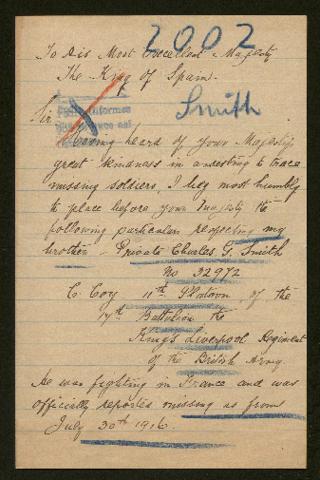 2002
To His Most Excellent Majesty
The King of Spain.
Smith
Sir
Having heard of your Majesty's
great kindness in endeavouring to trace
missing soldiers, I beg most humbly
to place before your Majesty the
following particulars respecting my
brother - Private Charles G. Smith
No 32972
C. Coy 11th Platoon, of the
17th Battalion the
King's Liverpool Regiment
of the British Army
He was fighting in France and was
officially reported missing as from
July 30th 1916.